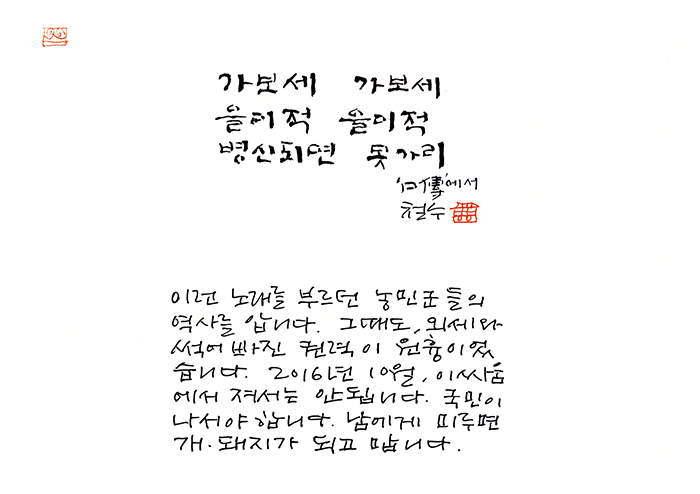 가보세 가보세
을미적 을미적
병신되면 못가리
'口傳'에서
철수
이런 노래를 부르던 농민군들의
역사를 압니다. 그때도, 외세와
썩어빠진 권력이 원흉이었
습니다. 2016년 10월, 이싸움
에서 져서는 안됩니다. 국민이
나서야 합니다. 남에게 미루면
개·돼지가 되고 맙니다.